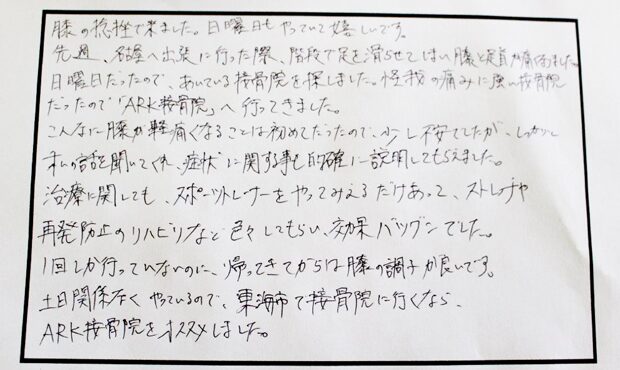 膝の捻挫で来ました。日曜日もやっていて嬉しいです。
先週、名古屋へ出張に行った際、階段で足を滑らせてしまい膝と足首が痛めました。
日曜日だったので、あいている接骨院を探しました。怪我の痛みに強い接骨院
だったので「ARK接骨院」へ行ってきました。
こんなに膝が痛くなることは初めてだったので、少し不安でしたが、しっかり
私の話を聞いてくれ、症状に関する事も的確に説明してもらえました。
治療に関しても、スポーツトレーナーをやってみえるだけあって、ストレッチや
再発防止のリハビリなど色々してもらい、効果バツグンでした。
1回しか行っていないのに、帰ってきてからは膝の調子が良いです。
土日関係なくやっているので、東海市で接骨院に行くなら、
ARK接骨院をオススメしました。